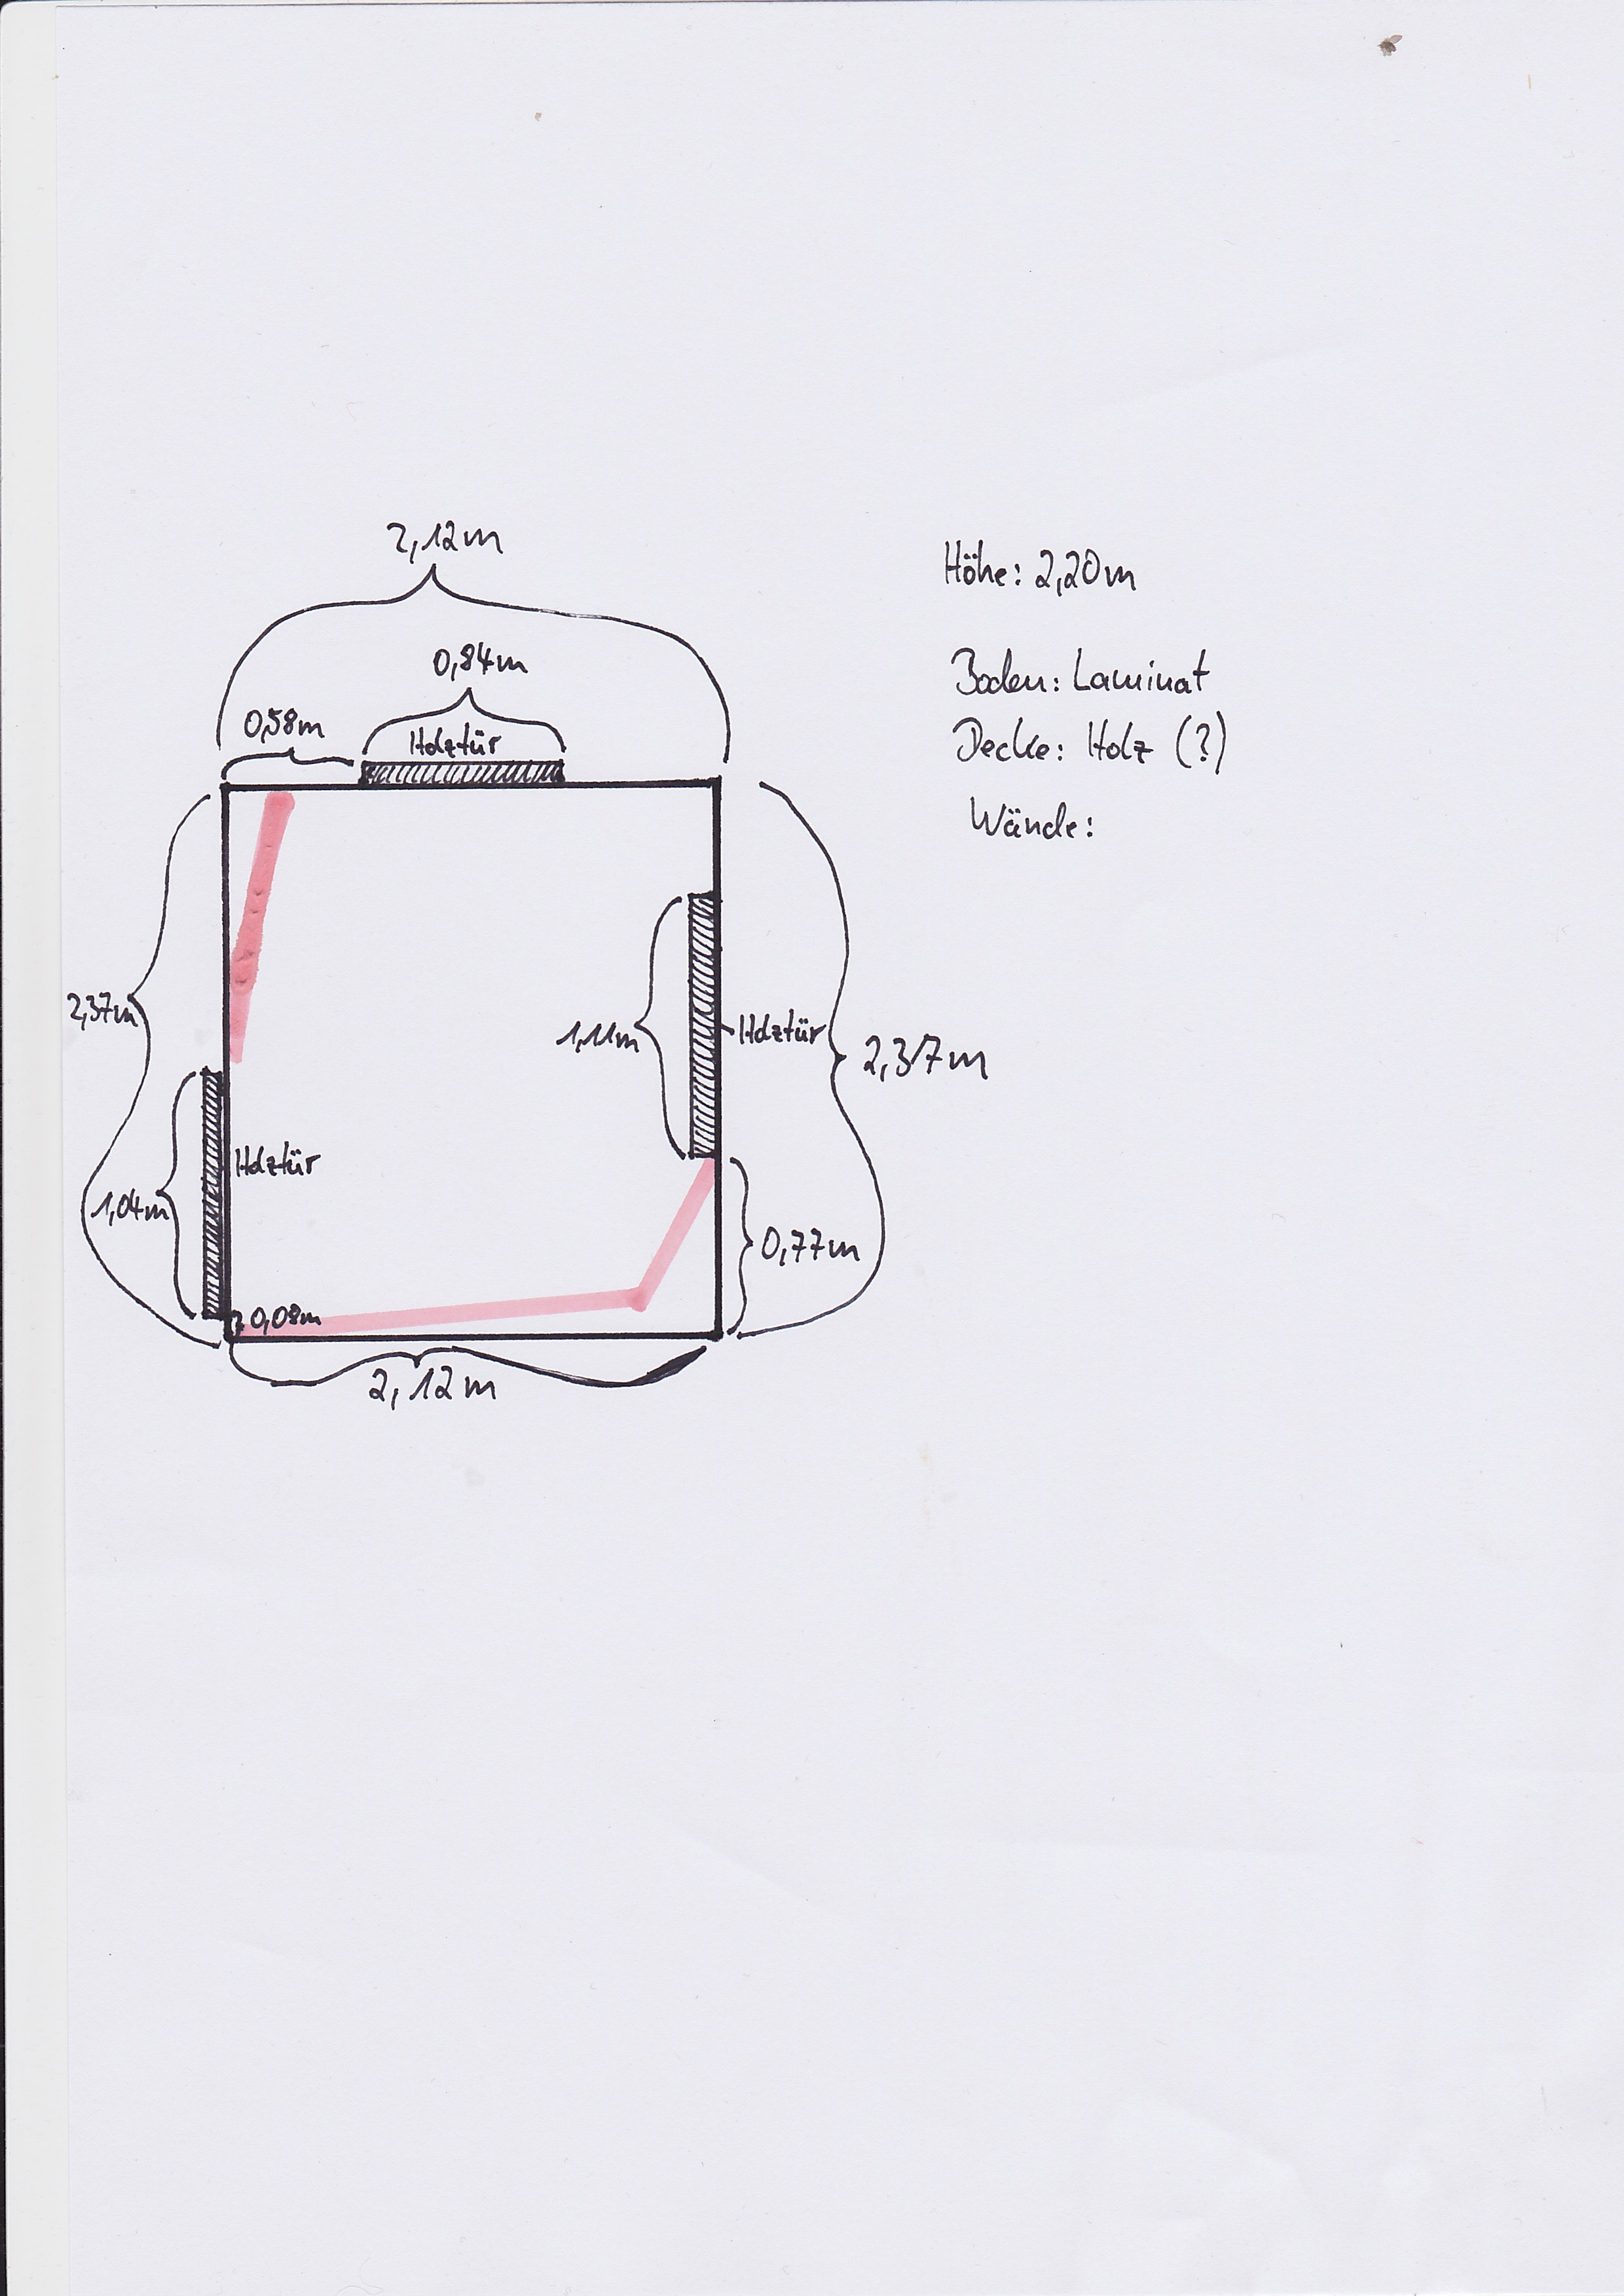 2,12m
Höhe: 2,20m
0,84m
Boden: Laminat
0,58m
Holztür
Decke: Holz (?)
Wände:
2,37m
1,11m
Holztür
2,37m
Holztür
1,04m
0,77m
0,08m
2,12m